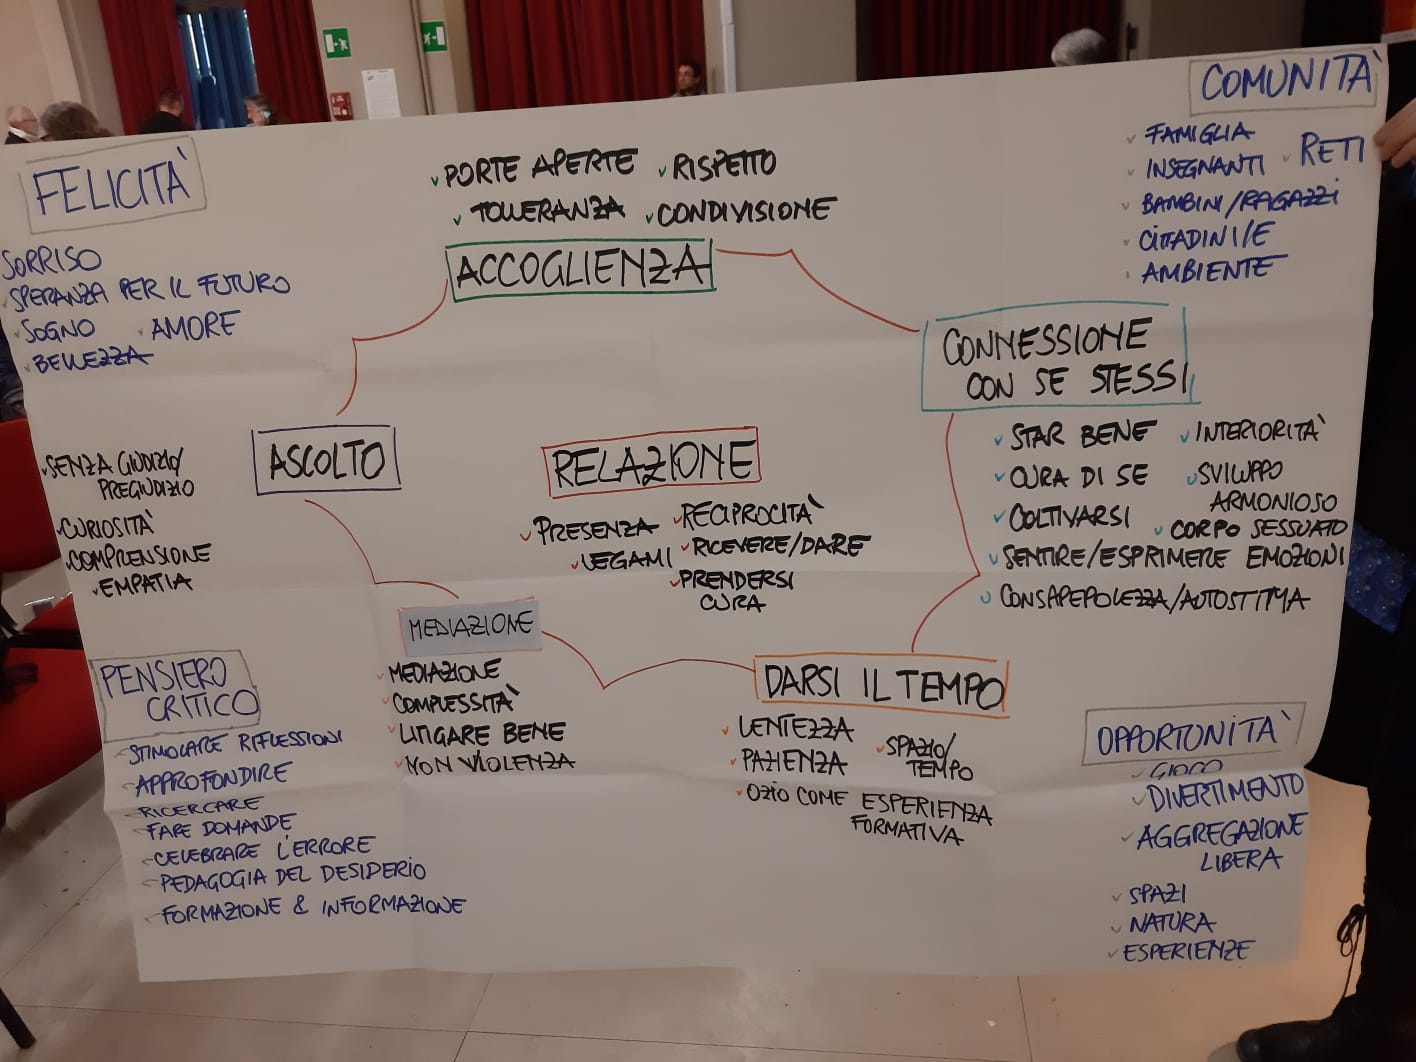 FELICITÀ
SORRISO
SPERANZA PER IL FUTURO
SOGNO
AMORE
BELLEZZA
PORTE APERTE
RISPETTO
TOLLERANZA
CONDIVISIONE
ACCOGLIENZA
COMUNITÀ
FAMIGLIA
INSEGNANTI
RETI
BAMBINI/RAGAZZI
CITTADINI/E
AMBIENTE
CONNESSIONE
CON SE STESSI
STAR BENE
INTERIORITÀ
CURA DI SE
SVILUPPO
ARMONIOSO
COLTIVARSI
CORPO SESSUATO
SENTIRE/ESPRIMERE EMOZIONI
CONSAPEVOLEZZA/AUTOSTIMA
ASCOLTO
SENZA GIUDIZIO/
PREGIUDIZIO
CURIOSITÀ
COMPRENSIONE
EMPATIA
RELAZIONE
PRESENZA
RECIPROCITÀ
LEGAMI
RICEVERE/DARE
PRENDERSI
CURA
MEDIAZIONE
MEDIAZIONE
COMPLESSITÀ
LITIGARE BENE
NON VIOLENZA
DARSI IL TEMPO
LENTEZZA
SPAZIO/
TEMPO
PAZIENZA
OZIO COME ESPERIENZA
FORMATIVA
PENSIERO
CRITICO
STIMOLARE RIFLESSIONI
APPROFONDIRE
RICERCARE
FARE DOMANDE
CELEBRARE L'ERRORE
PEDAGOGIA DEL DESIDERIO
FORMAZIONE & INFORMAZIONE
OPPORTUNITÀ
GIOCO
DIVERTIMENTO
AGGREGAZIONE
LIBERA
SPAZI
NATURA
ESPERIENZE